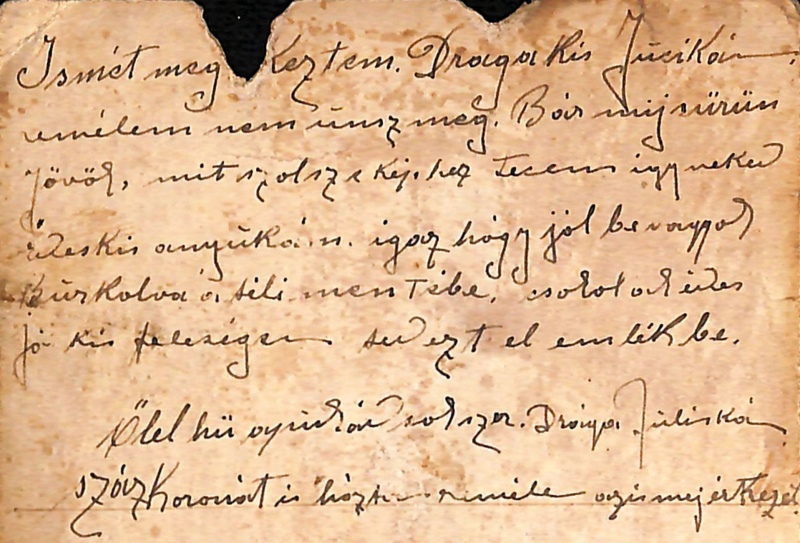 Ismét meg keztem. Draga Kis Jucikám,
remélem nem únsz meg. Bár mij sürün
jövök, mit szolsz s kép hez tecem igy neked
édes kis anyukám. igaz hógy jól be vagyok
Burkolva a téli mentébe. csokollak édes
jó kis feleségem ted ezt el emlékbe.
Ölel hü apukád sokszor. Drága Juliskám
száz Koronát is hoztam remélem azis mej érkezet.